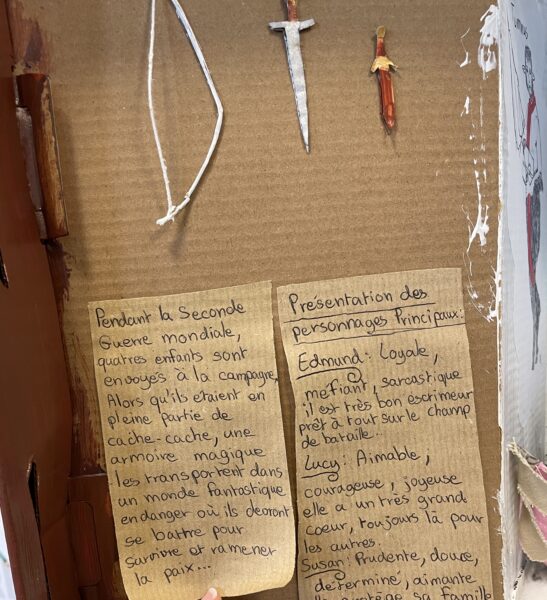 Pendant la Seconde
Guerre mondiale,
quatres enfants sont
envoyés à la campagne,
Alors qu'ils etaient en
pleine partie de
cache-cache, une
armoire magique
les transportent dans
un monde fantastique
en danger où ils devront
se battre pour
survivre et ramener
la paix...
Présentation des
personnages Principaux:
Edmund: Loyale,
mefiant, sarcastique
il est très bon escrimeur
prêt à tout sur le champ
de bataille...
Lucy: Aimable,
courageuse, joyeuse
elle a un très grand
coeur, toujours là pour
les autres.
Susan: Prudente, douce,
déterminé, aimante
sa famille